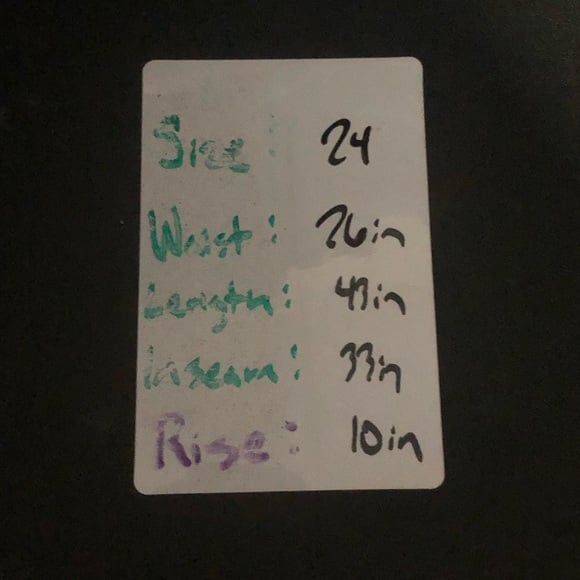 Size : 24
Waist : 26in
Length : 43in
Inseam : 33in
Rise : 10in